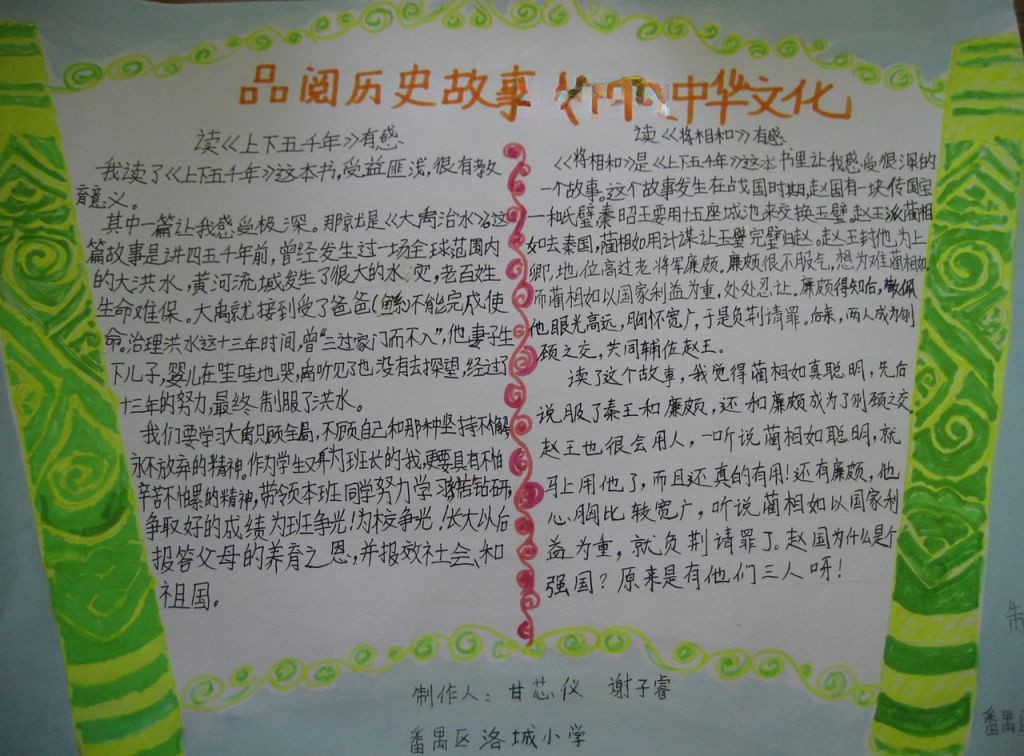 品阅历史故事 中华文化
读《上下五千年》有感
我读了《上下五千年》这本书,受益匪浅,很有教
育意义。
其中一篇让我感受极深。那就是《大禹治水》,这
篇故事是讲四五千年前,曾经发生过一场全球范围内
的大洪水,黄河流域发生了很大的水灾,老百姓
生命难保。大禹就接到受了爸爸(鲧)不能完成使
命。治理洪水这十三年时间,曾“三过家门而不入”,他妻子生
下儿子,婴儿在哇哇地哭,禹听见了也没有去探望,经过了
十三年的努力,最终制服了洪水。
我们要学习大禹只顾全局,不顾自己,和那种坚持不懈
永不放弃的精神。作为学生又身为班长的我,更要具有不怕
辛苦不怕累的精神,带领本班同学努力学习,刻苦钻研,
争取好的成绩为班争光!为校争光!长大以后
报答父母的养育之恩,并报效社会和
祖国。
读《将相和》有感
《将相和》是《上下五千年》这本书里让我感受很深的
一个故事。这个故事发生在战国时期,赵国有一块传国宝
—和氏璧秦昭王要用十五座城池来交换玉璧。赵王派蔺相
如去秦国,蔺相如用计谋让玉璧完璧归赵。赵王封他为上
卿,地位高过老将军廉颇。廉颇很不服气,想为难蔺相如。
而蔺相如以国家利益为重,处处忍让。廉颇得知后,敬佩
他眼光高远,胸怀宽广,于是负荆请罪。后来,两人成为刎
颈之交,共同辅佐赵王。
读了这个故事,我觉得蔺相如真聪明,先后
说服了秦王和廉颇,还和廉颇成为了刎颈之交。
赵王也很会用人,一听说蔺相如聪明,就
马上用他了,而且还真的有用!还有廉颇,他
心胸比较宽广,听说蔺相如以国家利
益为重,就负荆请罪了。赵国为什么是个
强国?原来是有他们三人呀!
制作人:甘芯仪 谢子睿
番禺区洛城小学
制
番禺